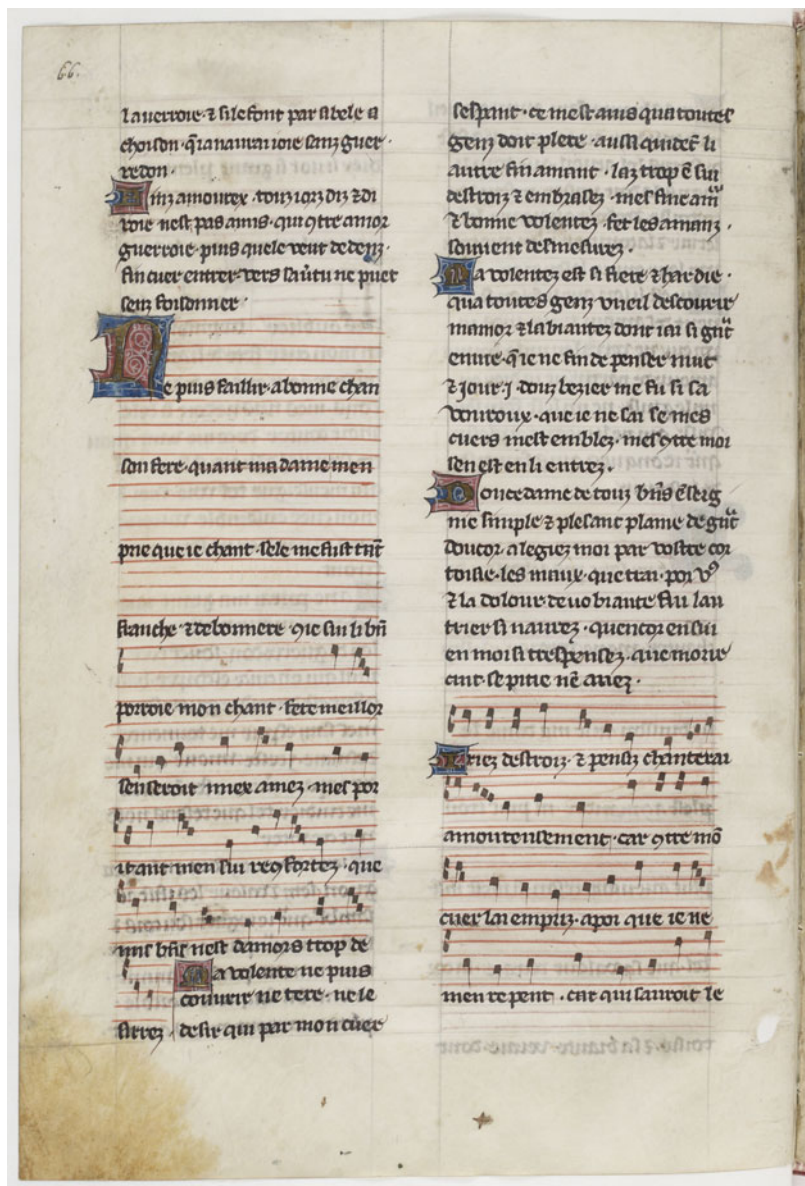 66.
lauerroie · ⁊ sile font par sa bele a
choison · q̄ ia naurai ioie sanz guer
redon ·
Finz amourex · touz iorz diz ⁊ di
roie nest pas amis · qui ꝯtre amor
guerroie · puis quele veut dedenz ·
fin cuer entrer · vers sau'tu ne puet
senz foisonner ·
Ne puis faillir · a bonne chan
son fere · quant ma dame men
prie que ie chant · sele me fust tāt
franche · ⁊ debonnere ꝯie sui li biē
porroie mon chant · fere meillor
sen seroit miex amez · mes por
itant men sui recꝯfortez · que
nus biēs nest damors trop de
sirrez ·
Ma volente ne puis
couurir ne tere · ne le
desir qui par mon cuer
sespant · ce mest auis qua toutes
genz doit plere · aussi qui dec̄t li
autre fin amant · laz trop ē sui
destroiz ⁊ embrasez · mes fine am̄
⁊ bonne volentez · fet les amanz ·
souuent desmesurez ·
Ma volentez est si fiere ⁊ hardie ·
qua toutes genz vueil descourir
mamor ⁊ la biautez dont iai si gr̄t
enuie · q̄ ie ne fin de penser nuit
⁊ iour · j · douz bezier me fu si sa
vouroux · que ie ne sai se mes
cuers mest emblez · mes ꝯtre moi
sen est en li entrez ·
Douce dame de touz biēs ēseig
nie simple ⁊ plesant plaine de gr̄t
doucor · alegiez moi par vostre cor
toisie · les maux · que trai · por vꝰ
⁊ la dolour · de uo biaute fui lau
trier si naurez · quencor en sui
en moi si trespensez · que morir
cuit · se pitie nē auez ·
Iriez destroiz · ⁊ pensiz chanterai
amoureusement · car ꝯtre mō
cuer lai empriz · a por que ie ne
men repent · car qui sauroit le